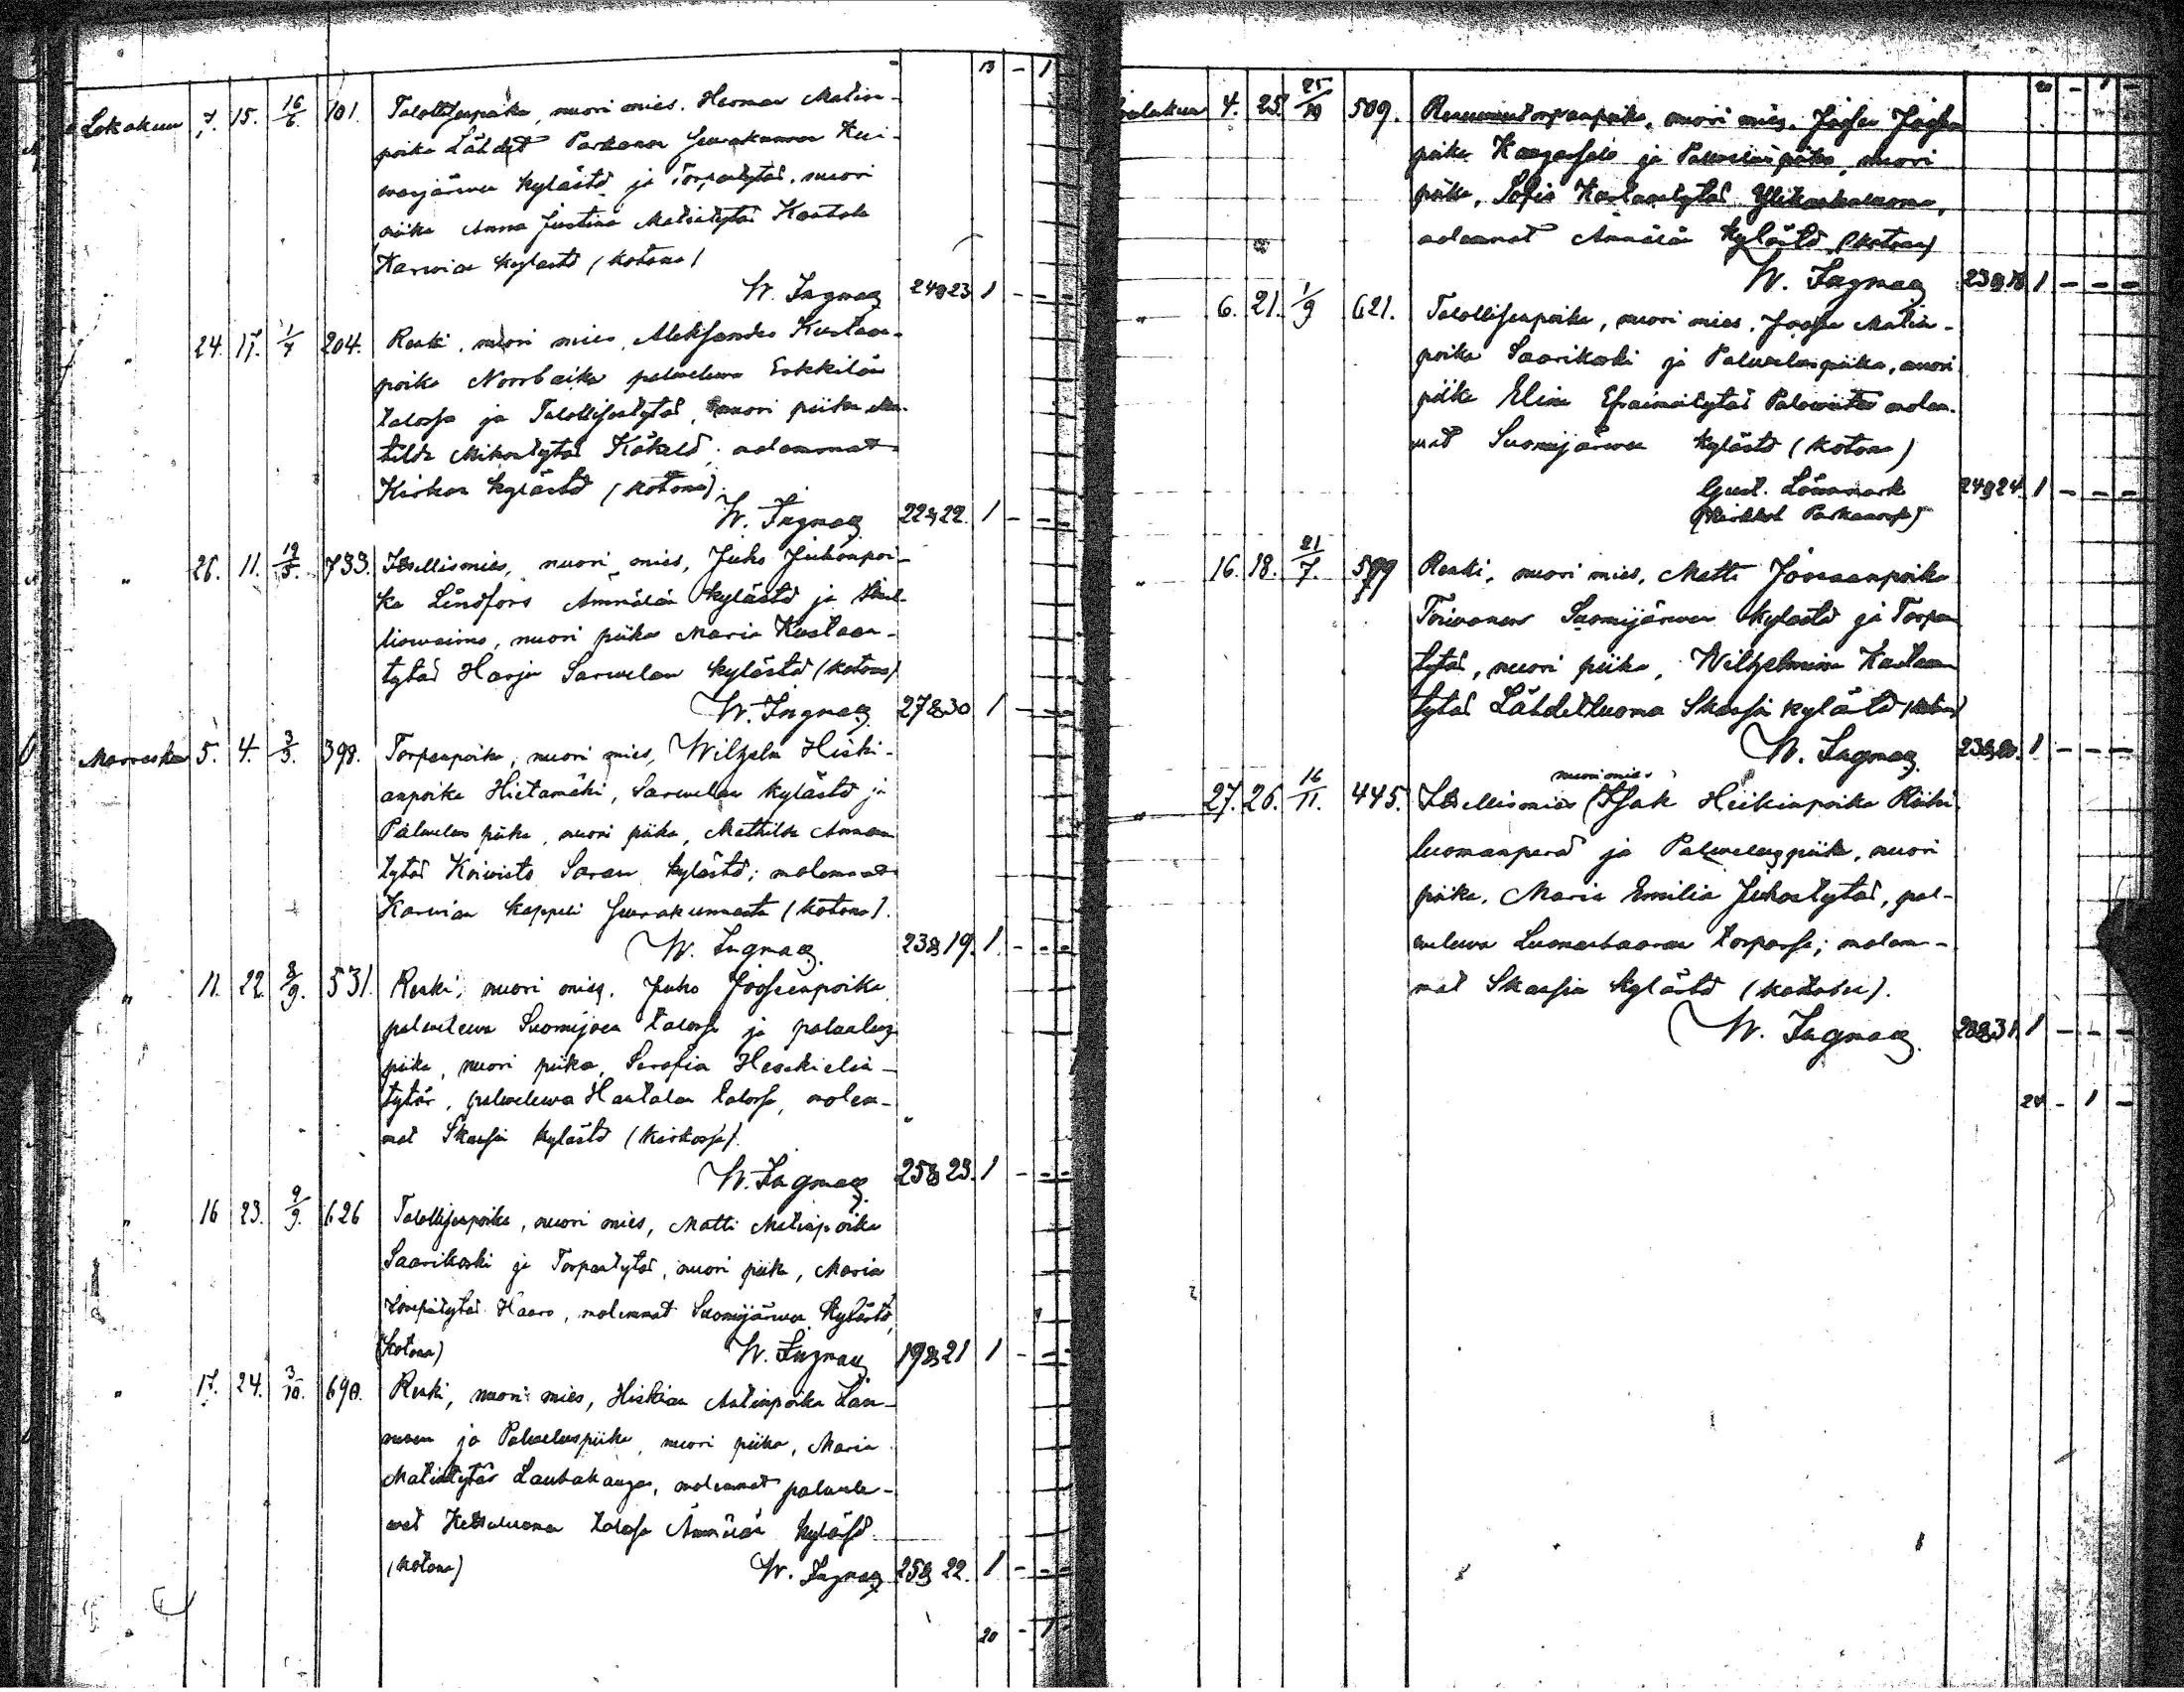 13 - 1
Lokakuu 7. 15. 16/6. 101. Talollisenpoika, nuori mies, Herman Matin-
poika Lähdet Parkanon Seurakunnan Kui-
wasjärwen kylästä ja Torpantytär, nuori
piika Anna Justina Matintytär Kantola
Karwian kylästä (kotona)
W. Ingman 24&23 1 - -
" 24. 17. 1/7 204. Renki, nuori mies, Aleksander Kustaan-
poika Norrbacka palweleva Erkkilän
talossa ja Talollisentytär, nuori piika Ma-
tilda Mikontytär Käkelä; molemmat
Kirkon kylästä (kotona).
W. Ingman 22&22. 1 - -
" 26. 11. 19/5. 733. Itsellismies, nuori mies, Juho Juhonpoi-
ka Lindfors Ämmälän kylästä ja Itsel-
lisvaimo, nuori piika Maria Kustaan-
tytär Harju Sarwelan kylästä (kotona)
W. Ingman 27&30 1 - -
Marraskuu 5. 4. 3/3. 398. Torpanpoika, nuori mies, Wilhelm Hiski-
anpoika Hietamäki, Sarwelan kylästä ja
Palwelus piika, nuori piika, Mathilda Annan
tytär Koivisto Saran kylästä; molemmat
Karwian kappeli Seurakunnasta (kotona).
W. Ingman 23&19. 1. - - -
" 11. 22. 8/9. 531. Renki, nuori mies, Juho Joosepinpoika
palweleva Suomijoen talossa ja palwelus
piika, nuori piika, Serafia Heskielin-
tytär, palweleva Hantalan talossa, molem-
mat Skantsin kylästä (kirkossa).
W. Ingman 25&23. 1 - - -
" 16 23. 9/9. 626 Talollisenpoika, nuori mies, Matti Matinpoika
Saarikoski ja Torpantytär, nuori piika, Maria
Haaro, molemmat Suomijärwen kylästä,
(kotona) W. Ingman 19&21 1 - -
" 17. 24. 3/10. 690. Renki, nuori mies, Hiskian Antinpoika Län-
nen ja Palweluspiika, nuori piika, Maria
Matintytär Lautakangas, molemmat palwele-
wat talossa Ämmälän kylässä
(kotona) W. Ingman 25&22. 1 - - -
20 - 1
20 - 1 -
Joulukuu 4. 25. 25/10 509. poika, nuori mies, Joosef Joosefin
poika Kangas ja Palwelus piika, nuori
piika, Sofia Kustaantytär Ylikoskeluoma,
molemmat Ämmälän kylästä (kotona)
W. Ingman 1 - - -
" 6. 21. 1/9 621. Talollisenpoika, nuori mies, Joosef Matin-
poika Saarikoski ja Palwelus piika, nuori
piika Elina Efraimintytär Palowiita molem-
mat Suomijärwen kylästä (kotona)
Gust. Lönnmark 24&24. 1 - - -
(Kirkkoh. Parkanossa)
" 16. 18. 21/7. Renki, nuori mies, Matti Joosuanpoika
Toivonen Suomijärwen kylästä ja Torpan
tytär, nuori piika, Wilhelmina Kustaan
tytär Lähdetluoma Skantsin kylästä (kotona)
W. Ingman 23&20. 1 - - -
nuori mies
" 27. 26. 16/11. 445. Itsellismies Isak Heikinpoika
luomanperä ja Palweluspiika, nuori
piika, Maria Emilia Juhontytär, pal-
weleva torpassa; molem-
mat Skantsin kylästä (kotona).
W. Ingman 28&31. 1 - - -
24 - 1 -